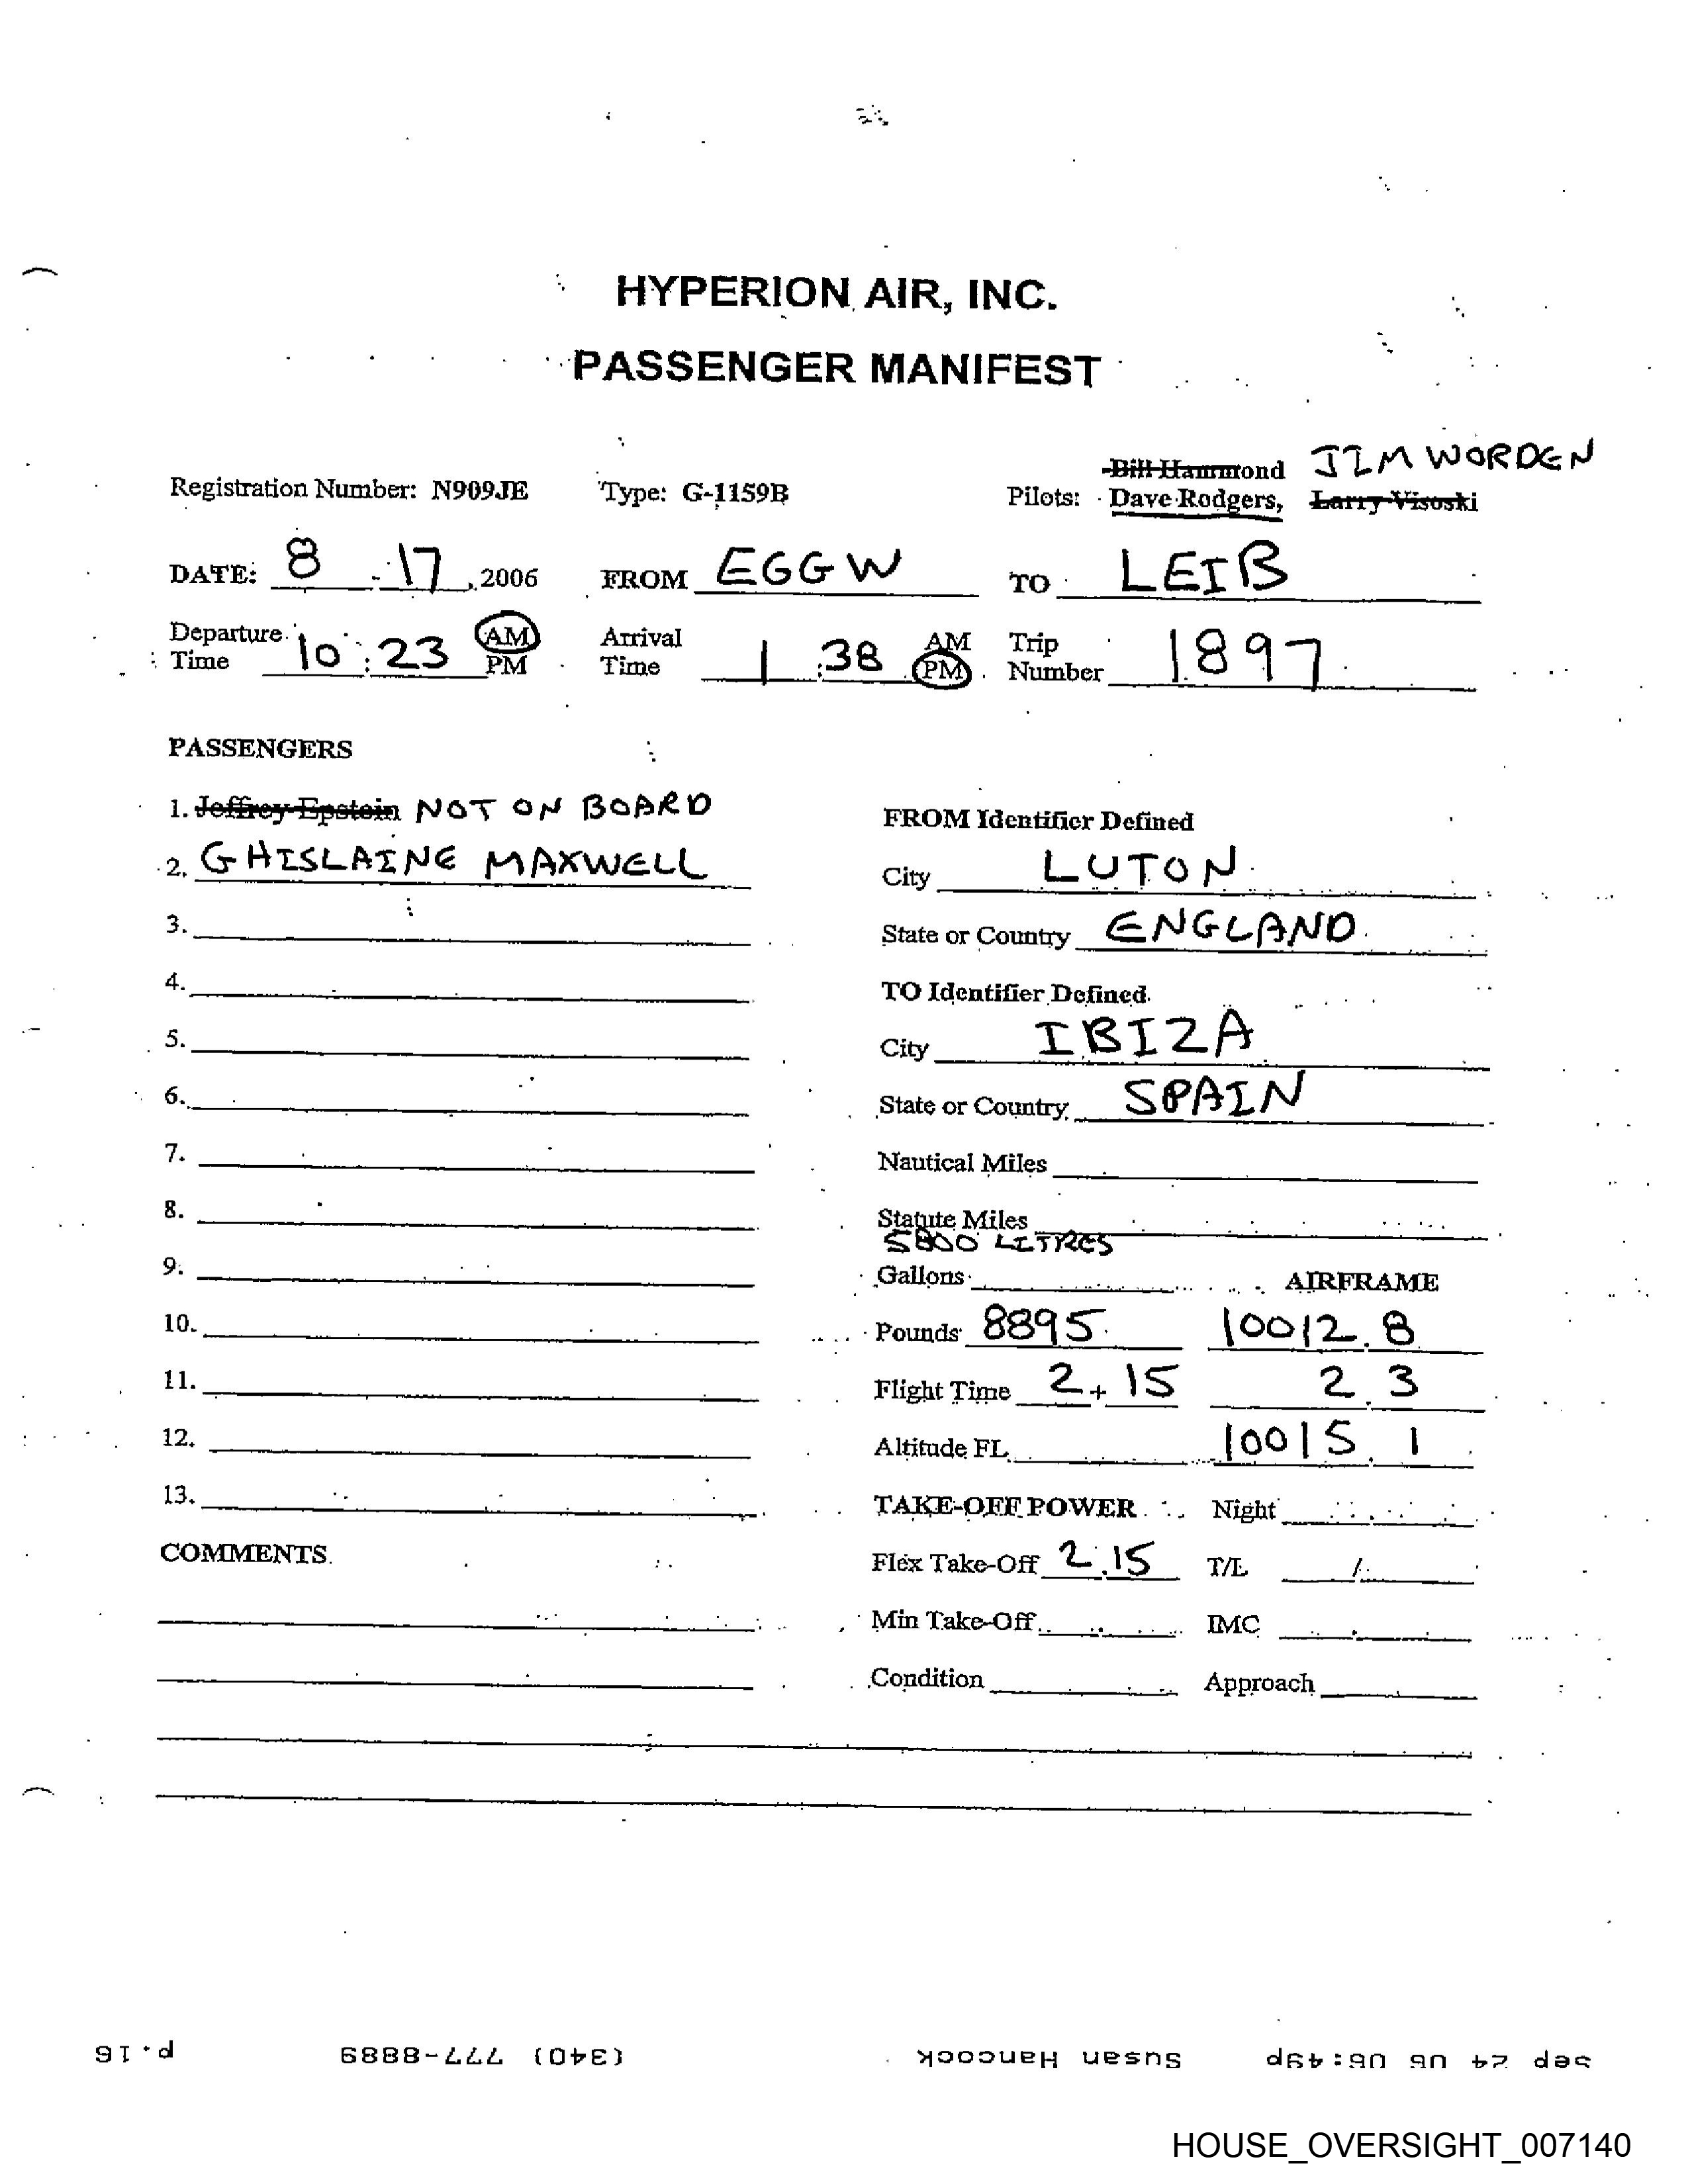 HYPERION AIR, INC.
PASSENGER MANIFEST
Bill Hammond JIM WORDEN
Registration Number: N909JE Type: G-1159B Pilots: Dave Rodgers, Larry Visoski
DATE: 8 - 17, 2006 FROM EGGW TO LEIB
Departure Time 10:23 AM PM Arrival Time 1:38 AM PM Trip Number 1897
PASSENGERS
1. Jeffrey Epstein NOT ON BOARD
2. GHISLAINE MAXWELL
3.
4.
5.
6.
7.
8.
9.
10.
11.
12.
13.
COMMENTS
FROM Identifier Defined
City LUTON
State or Country ENGLAND
TO Identifier Defined
City IBIZA
State or Country SPAIN
Nautical Miles
Statute Miles
5800 LITRES
Gallons AIRFRAME
Pounds 8895 10012.8
Flight Time 2+15 2.3
Altitude FL 10015.1
TAKE-OFF POWER Night
Flex Take-Off 2.15 T/L /
Min Take-Off IMC
Condition Approach
Sep 24 06 06:49p Susan Hancock (340) 777-8889 p.16
HOUSE_OVERSIGHT_007140